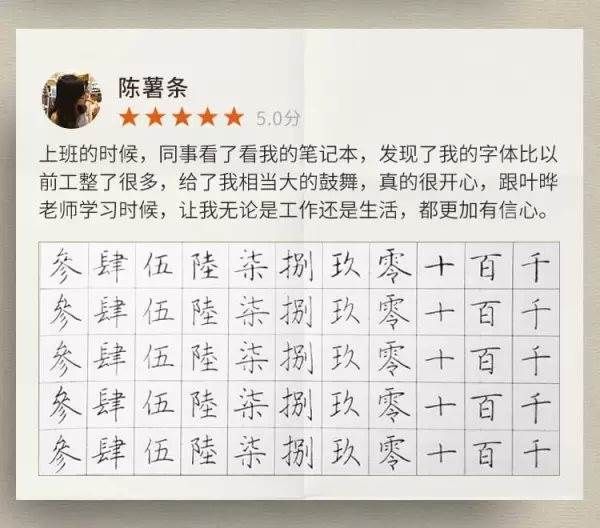 陈薯条
5.0分
上班的时候，同事看了看我的笔记本，发现了我的字体比以
前工整了很多，给了我相当大的鼓舞，真的很开心，跟叶晔
老师学习时候，让我无论是工作还是生活，都更加有信心。
參肆伍陸柒捌玖零十百千
參肆伍陸柒捌玖零十百千
參肆伍陸柒捌玖零十百千
參肆伍陸柒捌玖零十百千
參肆伍陸柒捌玖零十百千